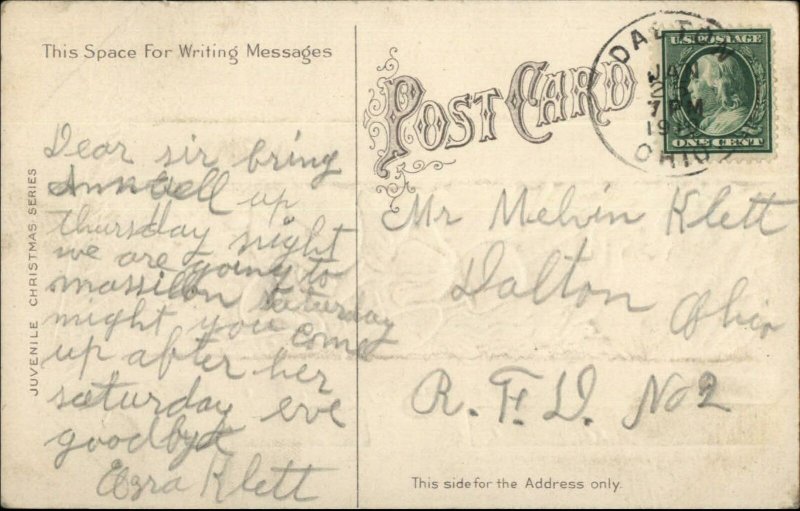 This Space For Writing Messages
Dear sir bring
up
thursday night
we are going to
massillon saturday
might you come
up after her
saturday eve
goodbye
Ezra Klett
JUVENILE CHRISTMAS SERIES
POST CARD
DALTON
JAN
7 PM
OHIO
U.S. POSTAGE
ONE CENT
Mr Melvin Klett
Dalton Ohio
R. F. D. No 2
This side for the Address only.